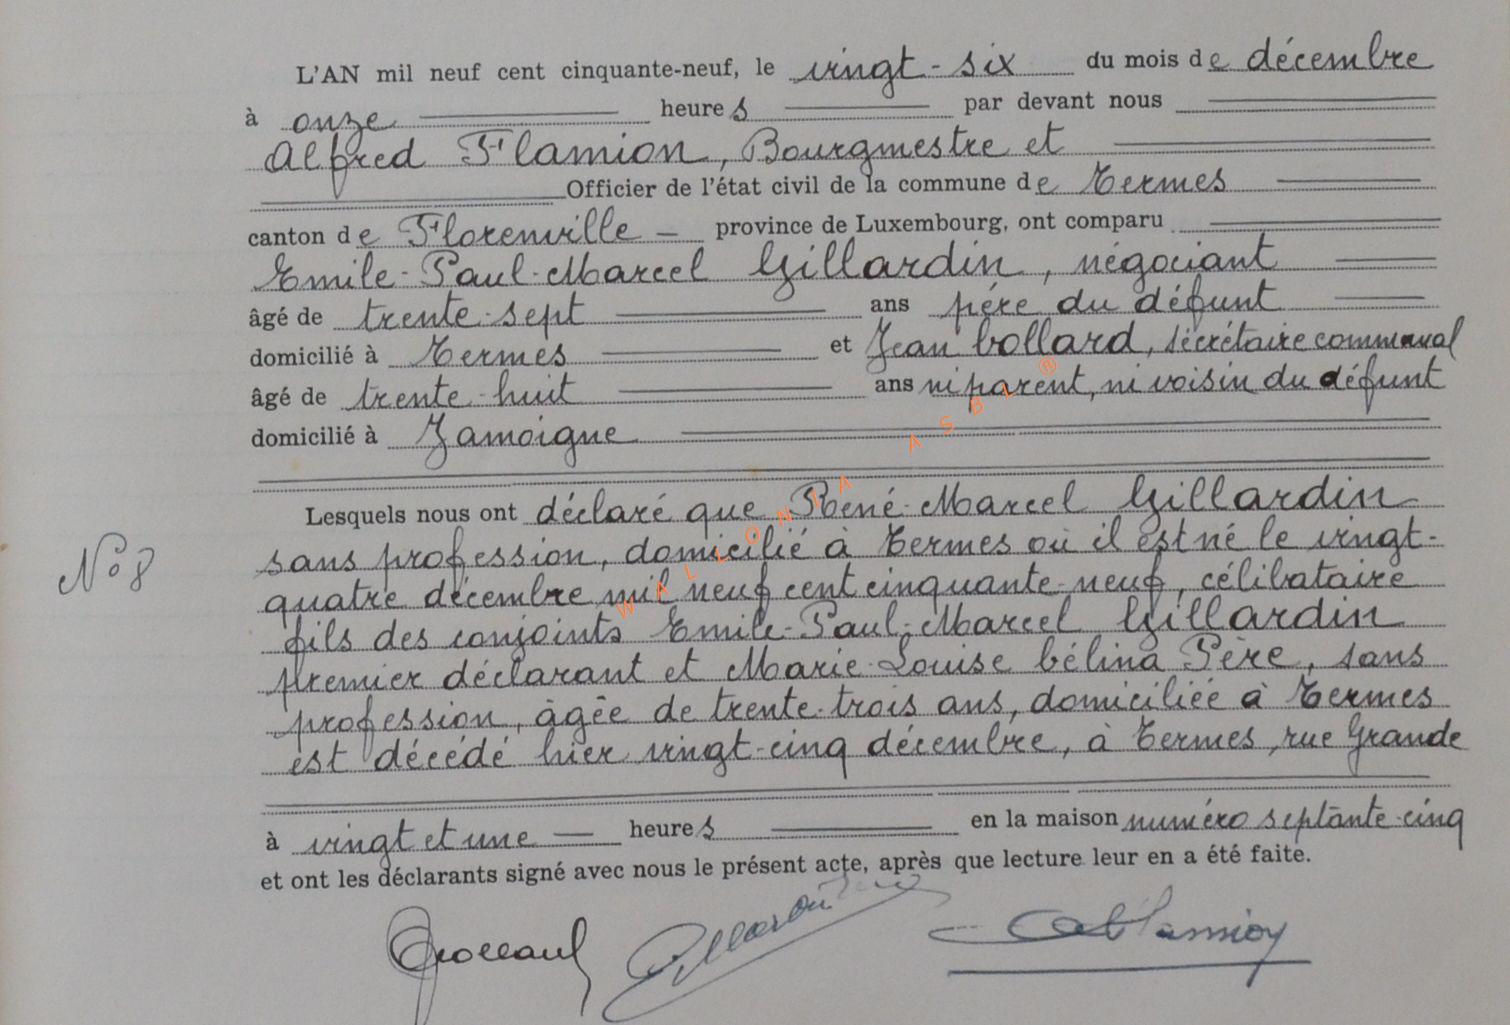 L'AN mil neuf cent cinquante-neuf, le vingt-six du mois de décembre
à onze heures par devant nous
Alfred Flamion, Bourgmestre et
Officier de l'état civil de la commune de Termes
canton de Florenville - province de Luxembourg, ont comparu
Emile-Paul-Marcel Gillardin, négociant
âgé de trente-sept ans père du défunt
domicilié à Termes et Jean Collard, secrétaire communal
âgé de trente-huit ans ni parent, ni voisin du défunt
domicilié à Jamoigne
Lesquels nous ont déclaré que René-Marcel Gillardin
sans profession, domicilié à Termes où il est né le vingt-
N° 8
quatre décembre mil neuf cent cinquante-neuf, célibataire
fils des conjoints Emile-Paul-Marcel Gillardin
premier déclarant et Marie-Louise Célina Père, sans
profession, âgée de trente-trois ans, domiciliée à Termes
est décédé hier vingt-cinq décembre, à Termes, rue Grande
à vingt et une heures en la maison numéro septante-cinq
et ont les déclarants signé avec nous le présent acte, après que lecture leur en a été faite.
JCollard Gillardin AFlamion
WALLONIA ASBL ®